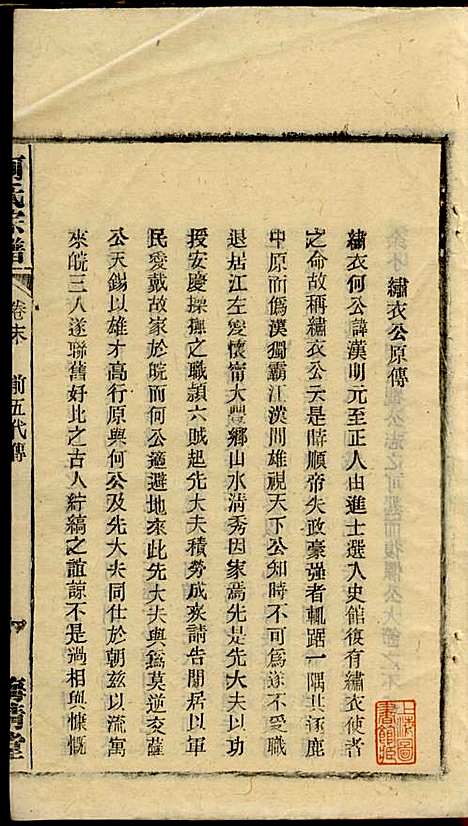 繡衣公原傳
繡衣何公諱漢明元至正人由進士選入史館復有繡衣使者
之命故稱繡衣公云是時順帝失政豪强者輒踞一隅其逐鹿
中原而偽漢獨霸江漢間雄視天下公知時不可為遂不受職
退居江左愛懷甯大豐鄉山水清秀因家焉先是先大夫以功
授安慶操撫之職頴六賊起先大夫積勞成疾請告閒居以軍
民愛戴故家於皖而何公適避地來此先大夫與爲莫逆交薩
公天錫以雄才高行原與何公及先大夫同仕於朝兹以流寓
來皖三人遂聯舊好比之古人紵縞之誼諒不是過相與慷慨
何氏宗譜
卷末
前五代傳
清堂
上海圖書館藏